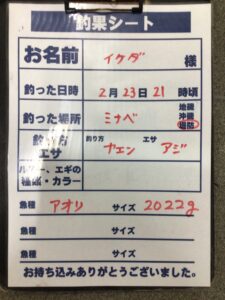 釣果シート
お名前 イケダ 様
釣った日時 2月23日21時頃
釣った場所 ミナベ 地磯 沖磯 堤防
釣り方 エサ 釣り方 ナエン エサ アジ
ルアー、エギの種類・カラー
魚種 アオリ サイズ 2022g
魚種 サイズ
魚種 サイズ
お持ち込みありがとうございました。